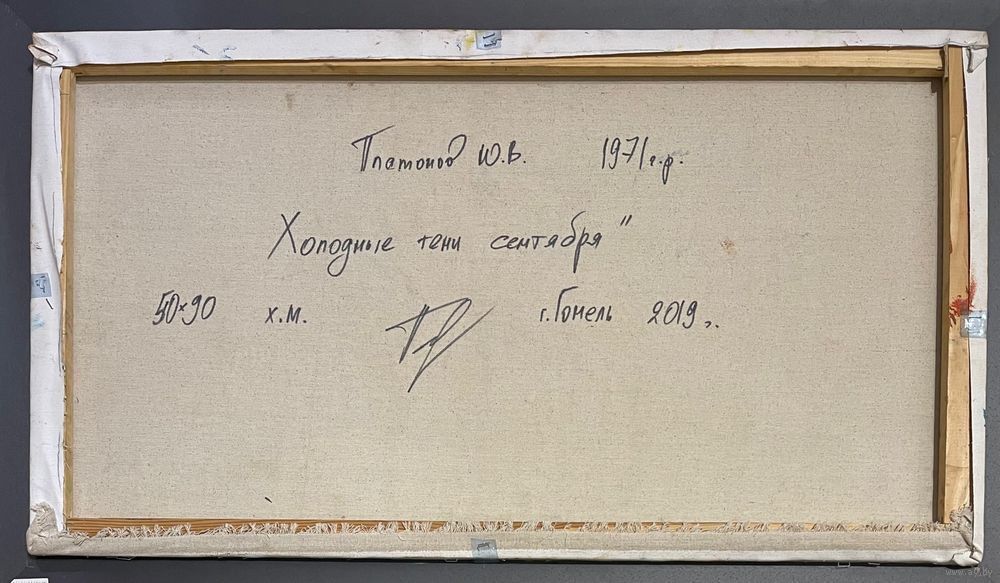 Платонов Ю.В. 1971 г.р.
Холодные тени сентября"
50×90 х.м. г. Гомель 2019 г.
www.ay.by